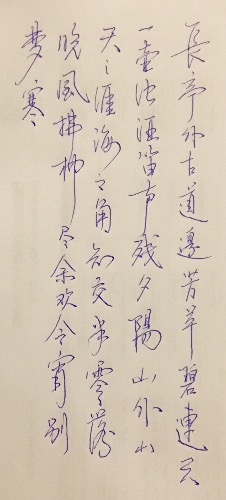 長亭外古道邊芳草碧連天
一壶浊酒笛声残夕陽山外山
天之涯海之角知交半零落
晚風拂柳尽余欢今宵别
梦寒